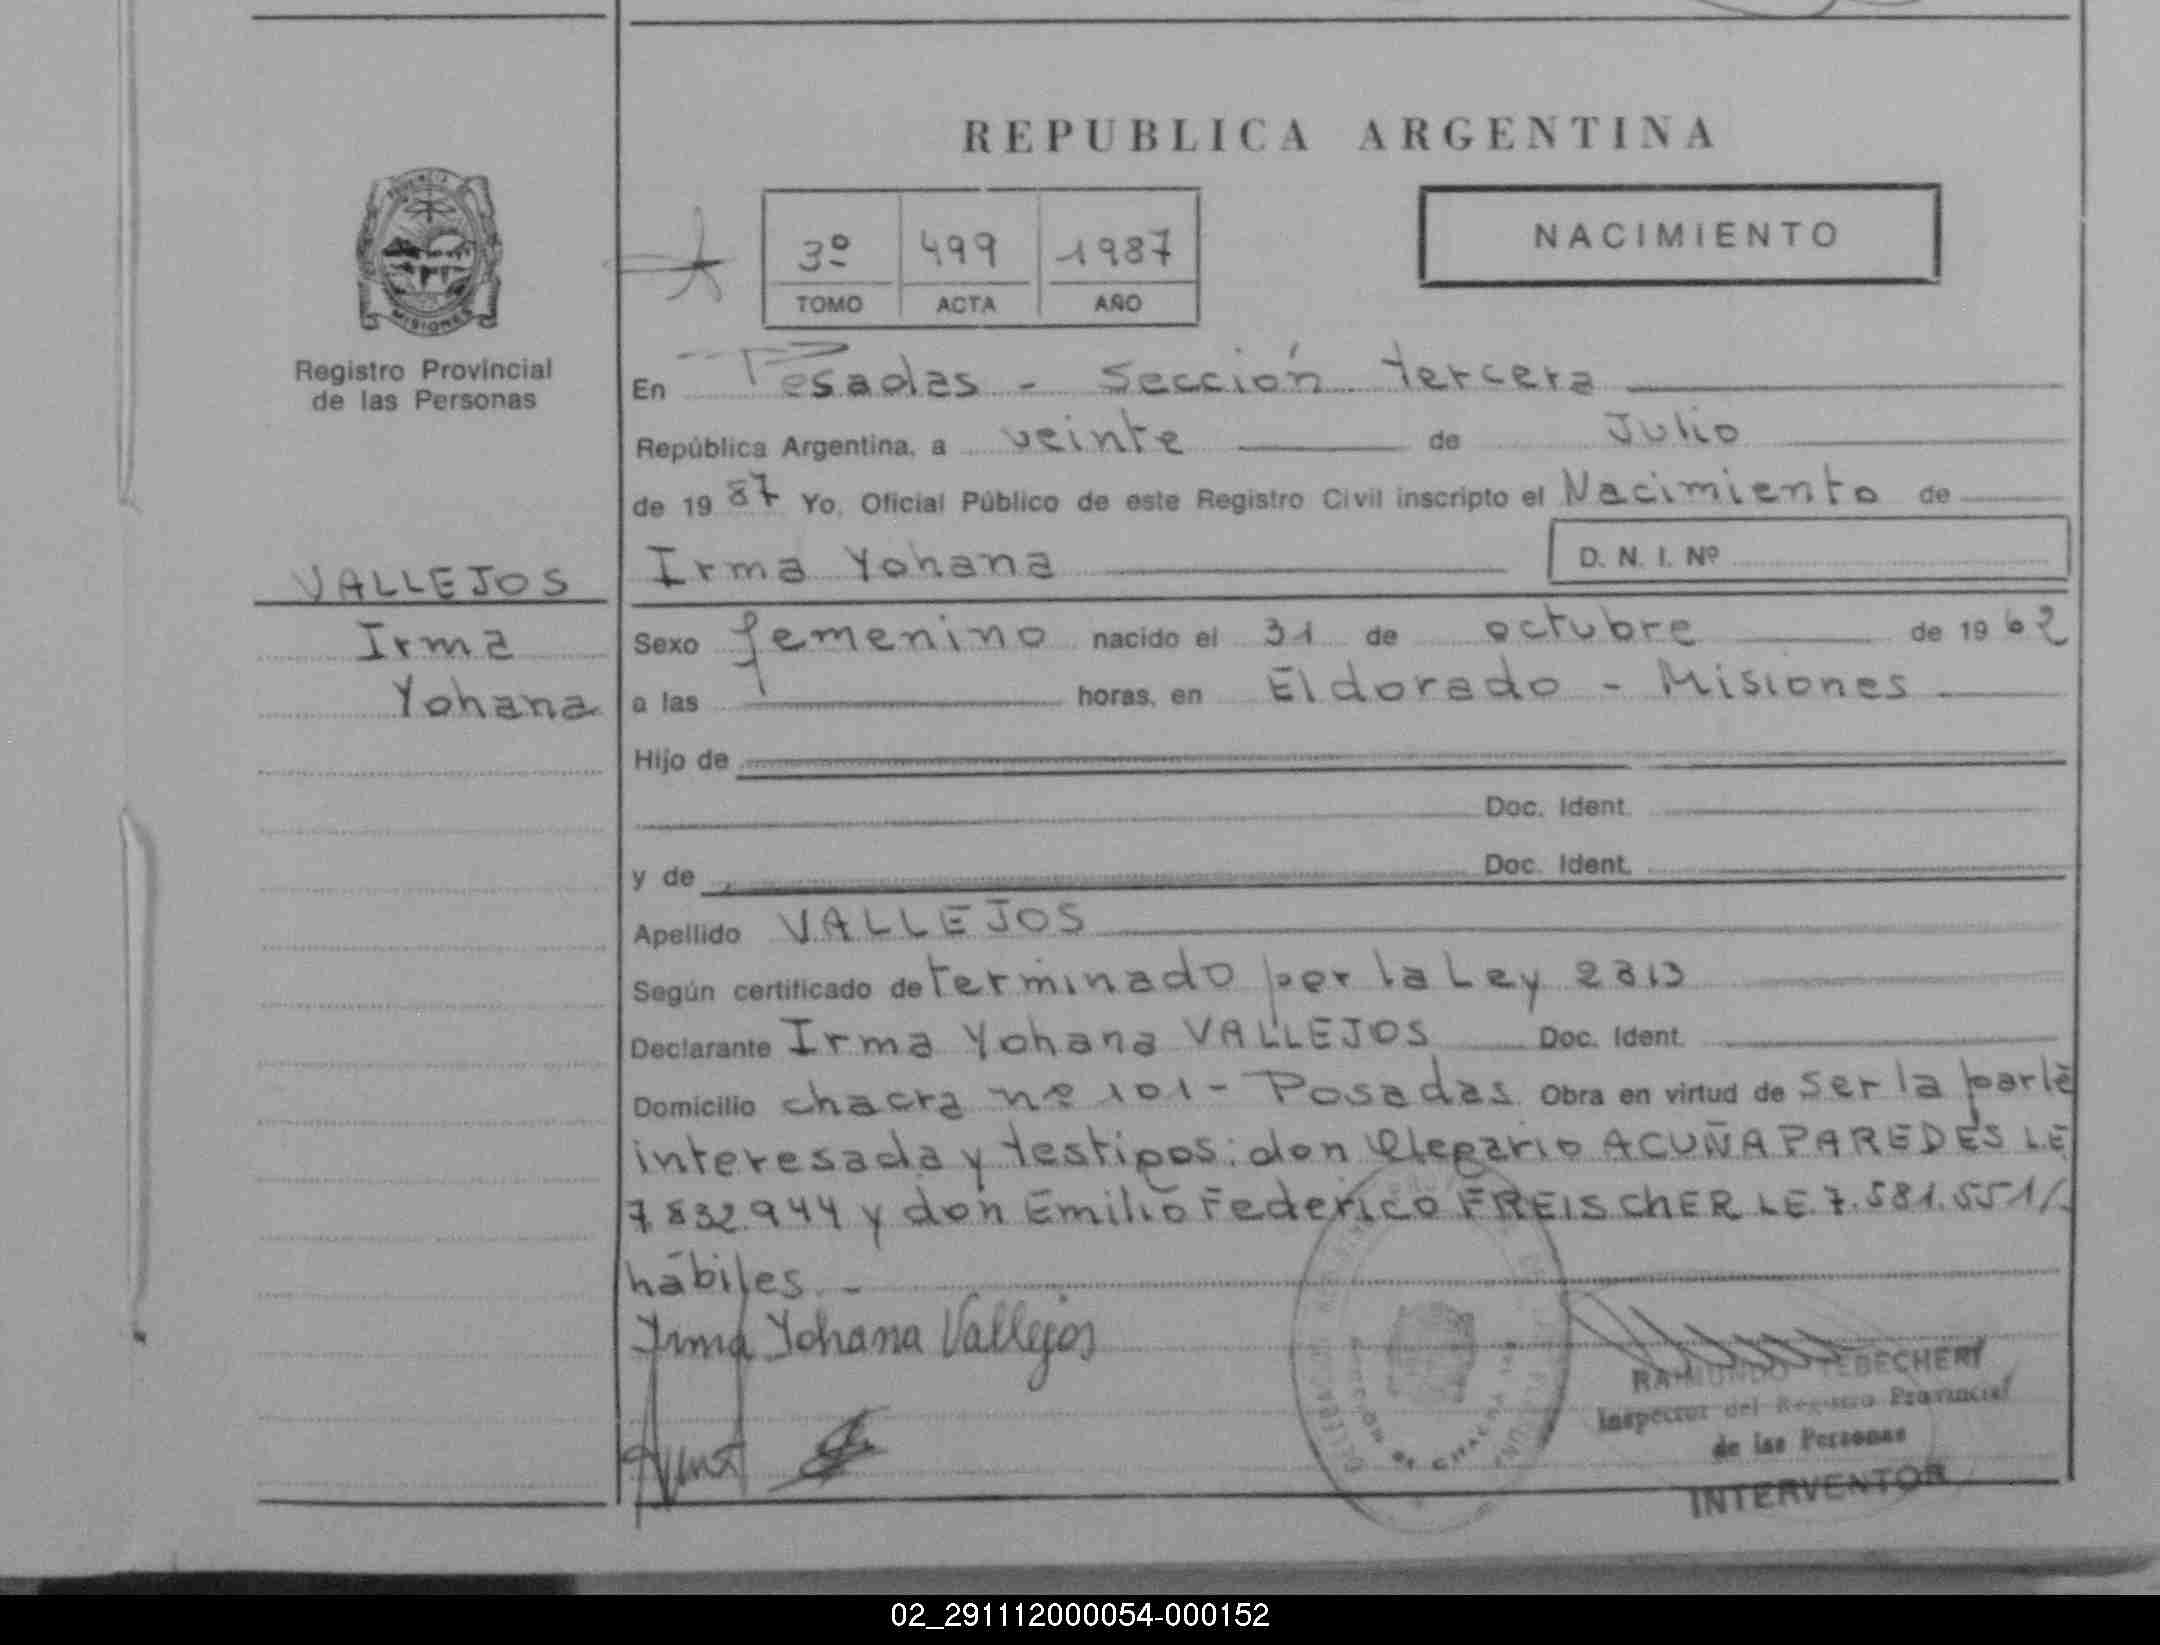 REPUBLICA ARGENTINA
NACIMIENTO
3º 499 1987
TOMO ACTA AÑO
PROVINCIA
MISIONES
Registro Provincial
de las Personas
VALLEJOS
Irma
Yohana
En Posadas - Sección tercera
República Argentina, a veinte de Julio
de 1987 Yo, Oficial Público de este Registro Civil inscripto el Nacimiento de
Irma Yohana D. N. I. Nº
Sexo femenino nacido el 31 de octubre de 1962
a las horas, en Eldorado - Misiones
Hijo de
Doc. Ident.
y de Doc. Ident.
Apellido VALLEJOS
Según certificado determinado por la Ley 2313
Declarante Irma Yohana VALLEJOS Doc. Ident.
Domicilio chacra nº 101 - Posadas Obra en virtud de ser la parte
interesada y testigos: don Olegario ACUÑA PAREDES LE
7.832.944 y don Emilio Federico FREISCHER LE.7.581.551/.
hábiles. -
Irma Yohana Vallejos
RAIMUNDO TEBECHERY
Inspector del Registro Provincial
de las Personas
INTERVENTOR
02_291112000054-000152